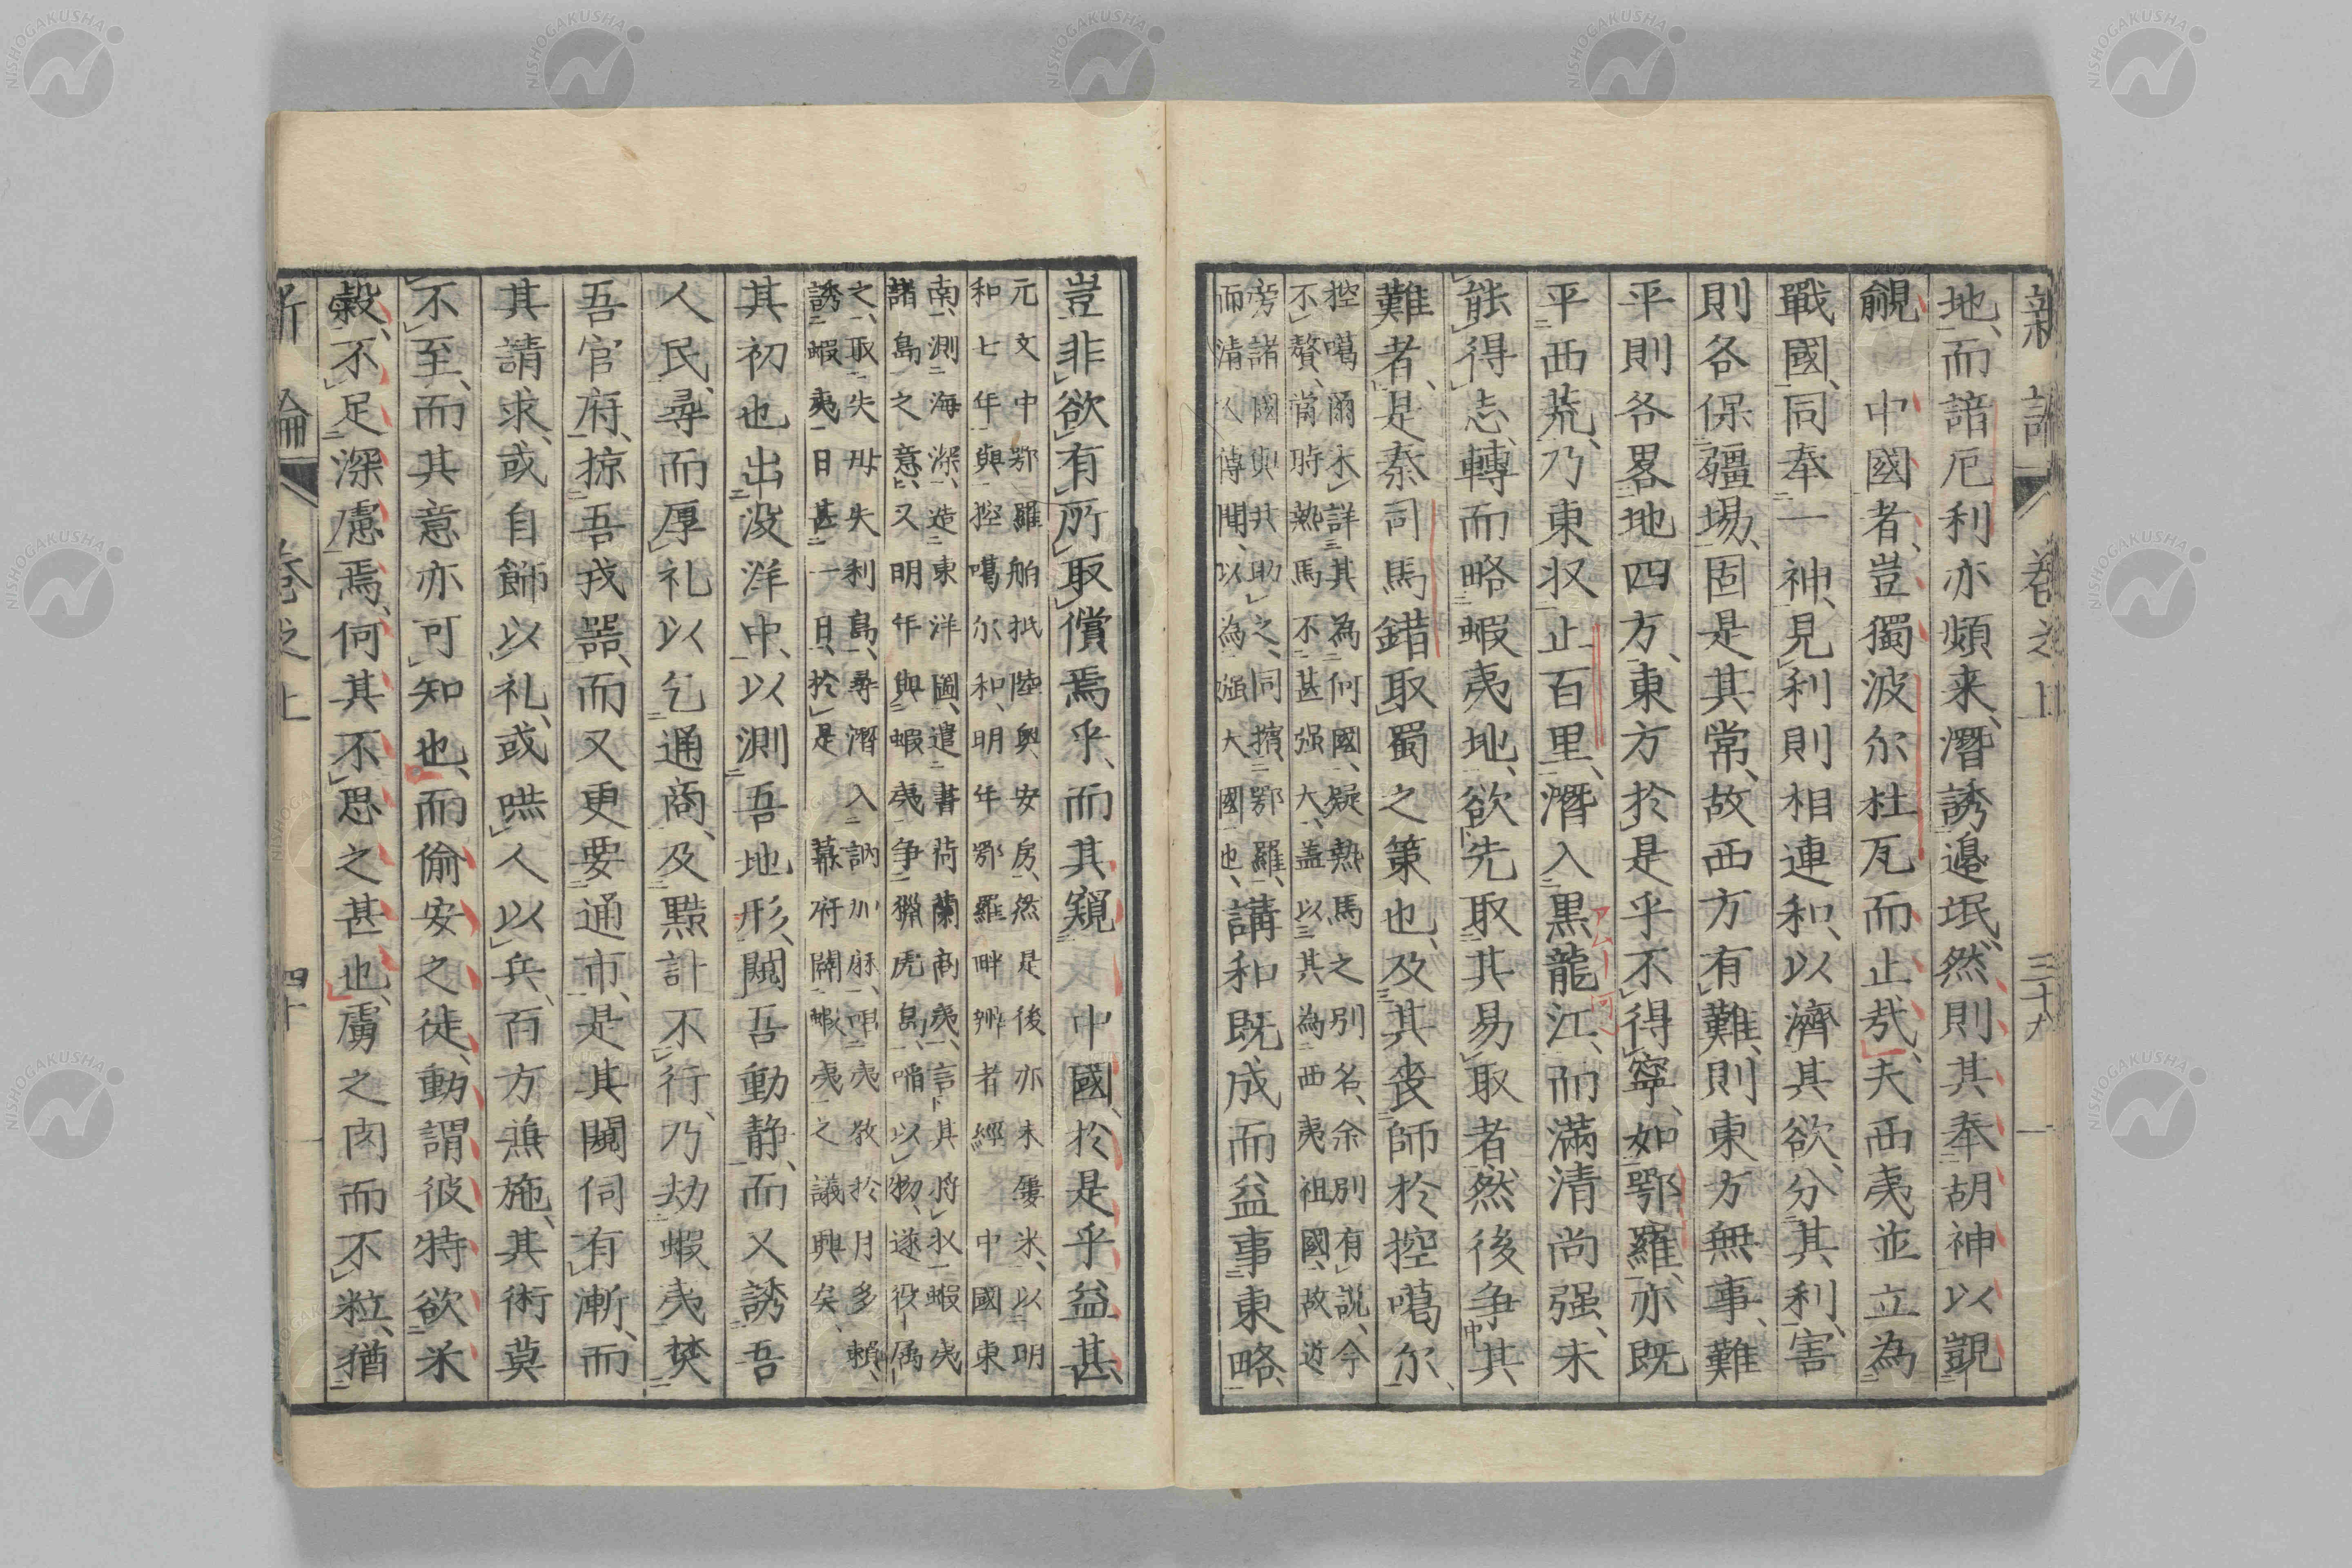 新論 卷之上 三十九
地、而諳厄利亦頻来、潛誘邉氓、然則其奉胡神以覬
覦 中國者、豈獨波尔杜瓦而止哉、夫西夷並立為
戰國、同奉一神、見利則相連和、以濟其欲、分其利、害
則各保疆場、固是其常、故西方有難、則東方無事、難
平則各畧地四方、東方於是乎不得寧、如鄂羅、亦既
平西荒、乃東収止百里、潛入黒龍江、而滿清尚强、未
能得志、轉而略蝦夷地、欲先取其易取者、然後争其
難者、是秦司馬錯取蜀之策也、及其喪師於控噶尔、
控噶爾木詳其為何國、疑熱馬之別名、余別有説、今
不贅、當時熱馬不甚强大、盖以其為西夷祖國、故近
旁諸國與共助之、同擯鄂羅、
而清人傳聞、以為强大國也、講和既成而益事東略、
豈非欲有所取償焉乎、而其窺 中國、於是乎益甚、
元文中鄂羅舶抵陸奥安房、然是後亦未屢来、以明
和七年與控噶尔和、明年鄂羅畔辨者經 中國東
南、測海深、造東洋圖、遣書荷蘭商夷、言其將収蝦夷
諸島之意、又明年與蝦夷争獵虎島、啗以物、遂役属
之、取失毋失利島、尋潛入訥加麻、唱夷教於月多賴、
誘蝦夷日甚一日、於是 幕府闢蝦夷之議興矣、
其初也出没洋中、以測吾地形、闚吾動静、而又誘吾
人民、尋而厚礼以乞通商、及黠計不行、乃劫蝦夷焚
吾官府、掠吾戎噐、而又更要通市、是其闚伺有漸、而
其請求、或自飾以礼、或哄人以兵、百方無施、其術莫
不至、而其意亦可知也、而偷安之徒、動謂彼特欲米
糓、不足深慮焉、何其不思之甚也、虜之肉而不粒、猶
新論 卷之上 四十